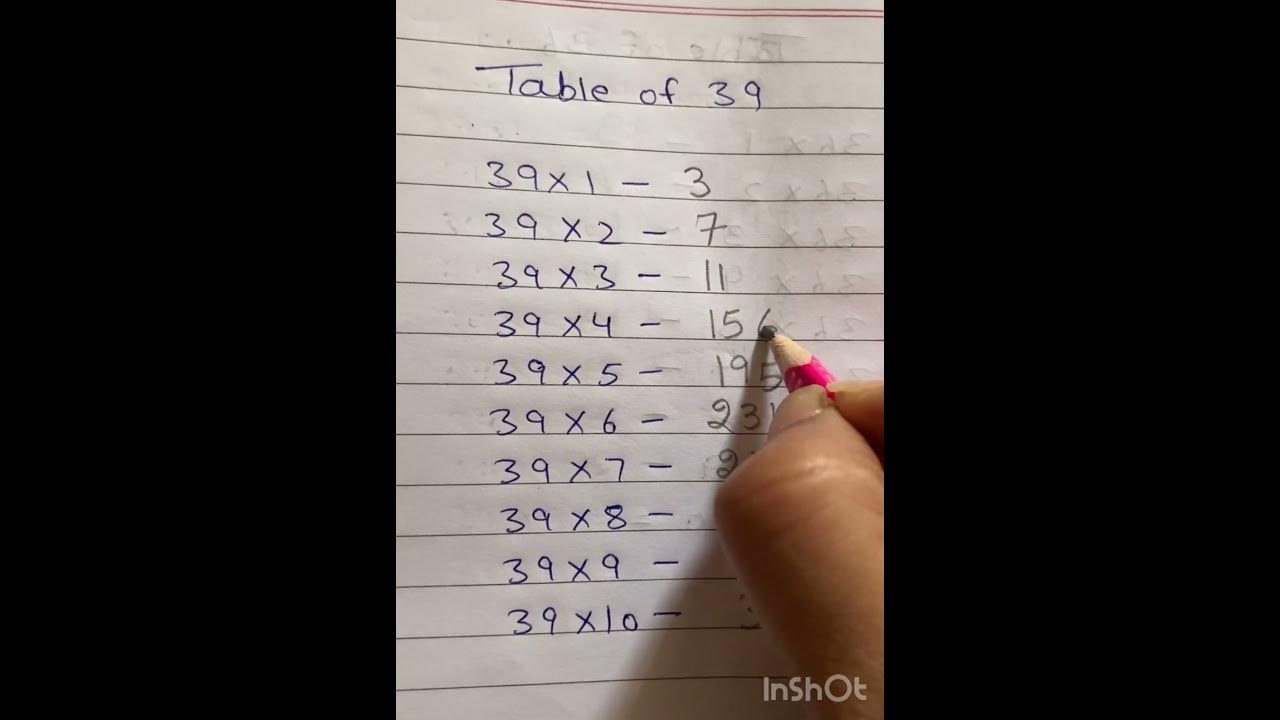 Table of 39
39 x 1 - 3
39 x 2 - 7
39 x 3 - 11
39 x 4 - 156
39 x 5 - 195
39 x 6 - 23
39 x 7 - 2
39 x 8 -
39 x 9 -
39 x 10 - 3
InShOt